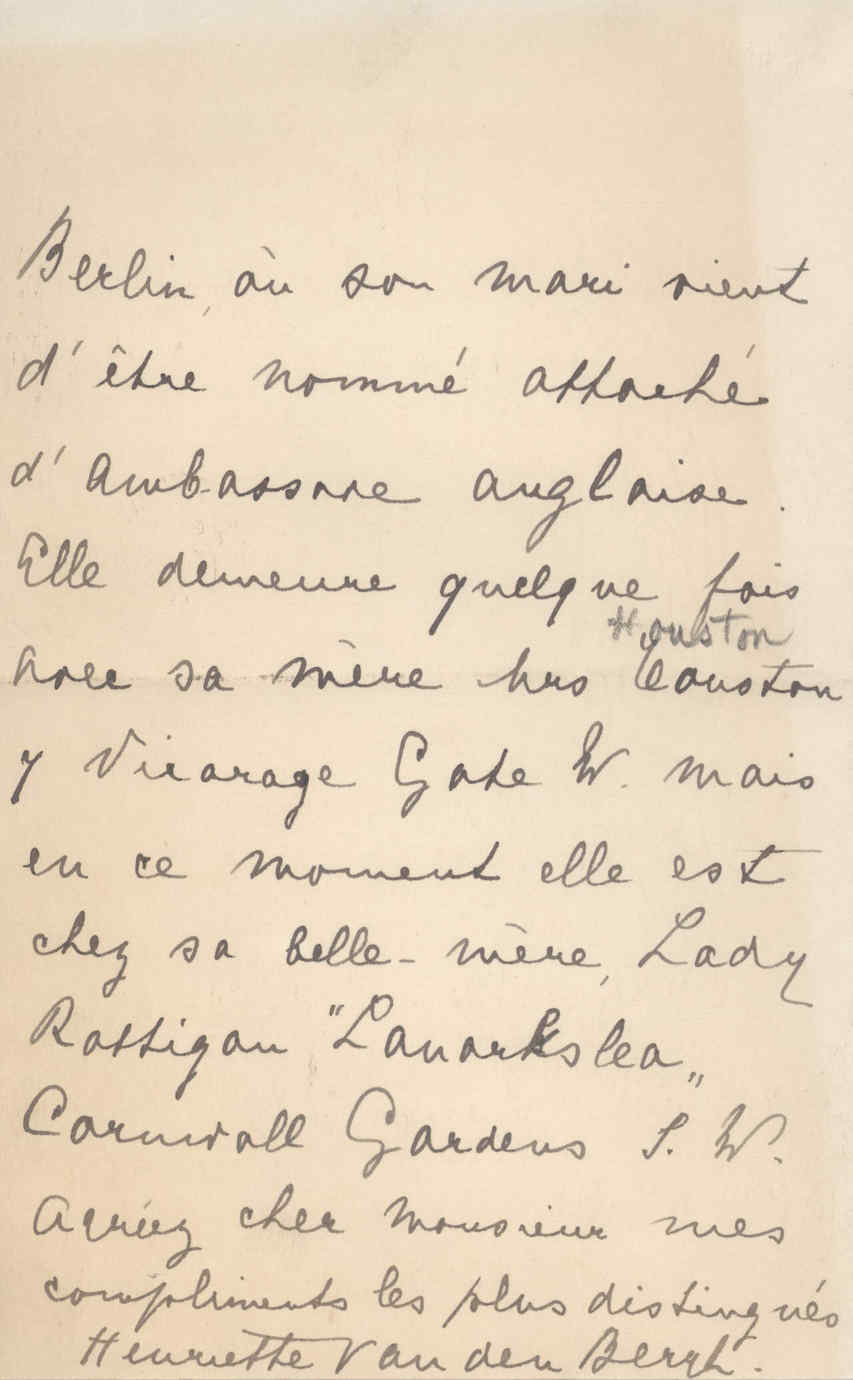 Berlin, où son mari vient
d'être nommé attaché
d'Ambassade anglaise.
Elle demeure quelque fois
Houston
avec sa mère Mrs Couston
7 Vicarage Gate W. mais
en ce moment elle est
chez sa belle-mère, Lady
Rattigan "Lanarkslea„
Cornwall Gardens S. W.
Agréez cher Monsieur mes
compliments les plus distingués
Henriette Van den Bergh.